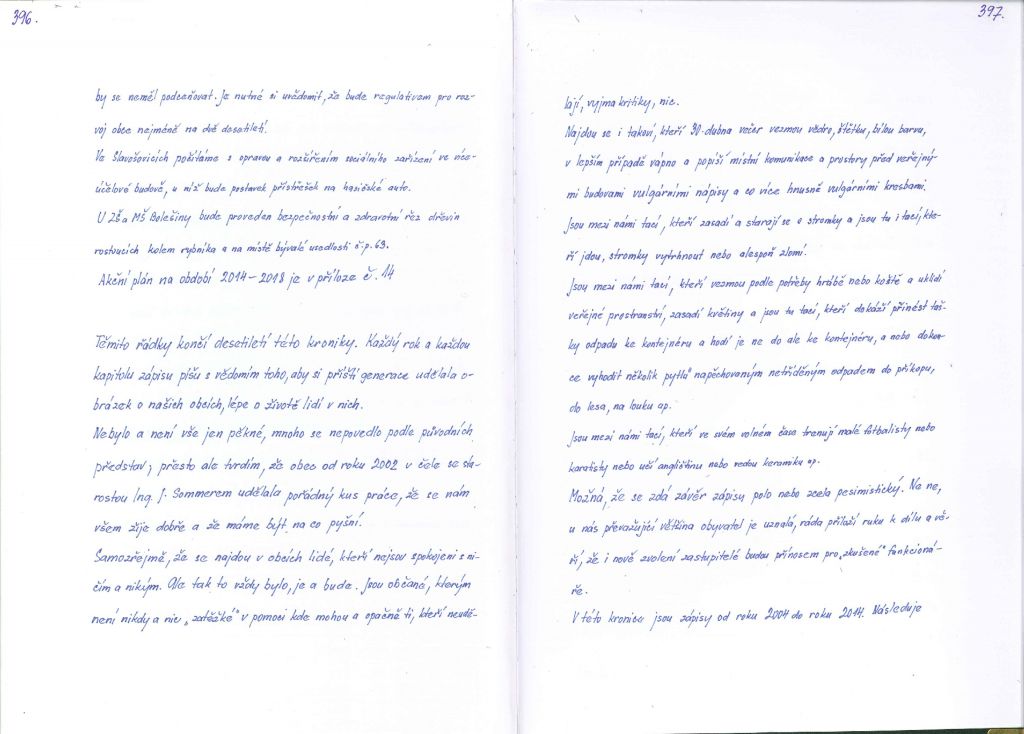 396.
by se neměl podceňovat. Je nutné si uvědomit, že bude regulativem pro roz-
voj obce nejméně na dvě desetiletí.
Ve Slavošovicích počítáme s opravou a rozšířením sociálního zařízení ve více-
účelové budově, u níž bude postaven přístřešek na hasičské auto.
U ZŠ a MŠ Bolešiny bude proveden bezpečnostní a zdravotní řez dřevin
rostoucích kolem rybníka a na místě bývalé usedlosti č.p. 63.
Akční plán na období 2014 – 2018 je v příloze č. 14
Těmito řádky končí desetiletí této kroniky. Každý rok a každou
kapitolu zápisu píšu s vědomím toho, aby si příští generace udělala o-
brázek o našich obcích, lépe o životě lidí v nich.
Nebylo a není vše jen pěkné, mnoho se nepovedlo podle původních
představ, přesto ale tvrdím, že obec od roku 2002 v čele se sta-
rostou Ing. J. Sommerem udělala pořádný kus práce, že se nám
všem žije dobře a že máme být na co pyšní.
Samozřejmě, že se najdou v obcích lidé, kteří nejsou spokojeni s ni-
čím a nikým. Ale tak to vždy bylo, je a bude. Jsou občané, kterým
není nikdy a nic „zatěžké" v pomoci kde mohou a opačně ti, kteří neudě-
397.
lají, vyjma kritiky, nic.
Najdou se i takoví, kteří 30. dubna večer vezmou vědro, štětku, bílou barvu,
v lepším případě vápno a popíší místní komunikace a prostory před veřejný-
mi budovami vulgárními nápisy a co více hnusně vulgárními kresbami.
Jsou mezi námi tací, kteří zasadí a starají se o stromky a jsou tu i tací, kte-
ří jdou, stromky vytrhnout nebo alespoň zlomí.
Jsou mezi námi tací, kteří vezmou podle potřeby hrábě nebo koště a uklidí
veřejné prostranství, zasadí květiny a jsou tu tací, kteří dokáží přinést taš-
ky odpadu ke kontejnéru a hodí je ne do ale ke kontejnéru, a nebo dokon-
ce vyhodit několik pytlů napěchovaným netříděným odpadem do příkopu,
do lesa, na louku ap.
Jsou mezi námi tací, kteří ve svém volném čase trenují malé fotbalisty nebo
karatisty nebo učí angličtinu nebo vedou keramiku ap.
Možná, že se zdá závěr zápisu polo nebo zcela pesimistický. Ne ne,
u nás převažující většina obyvatel je uznalá, ráda přiloží ruku k dílu a vě-
ří, že i nově zvolení zastupitelé budou přínosem pro „zkušené" funkcioná-
ře.
V této kronice jsou zápisy od roku 2004 do roku 2014. Následuje